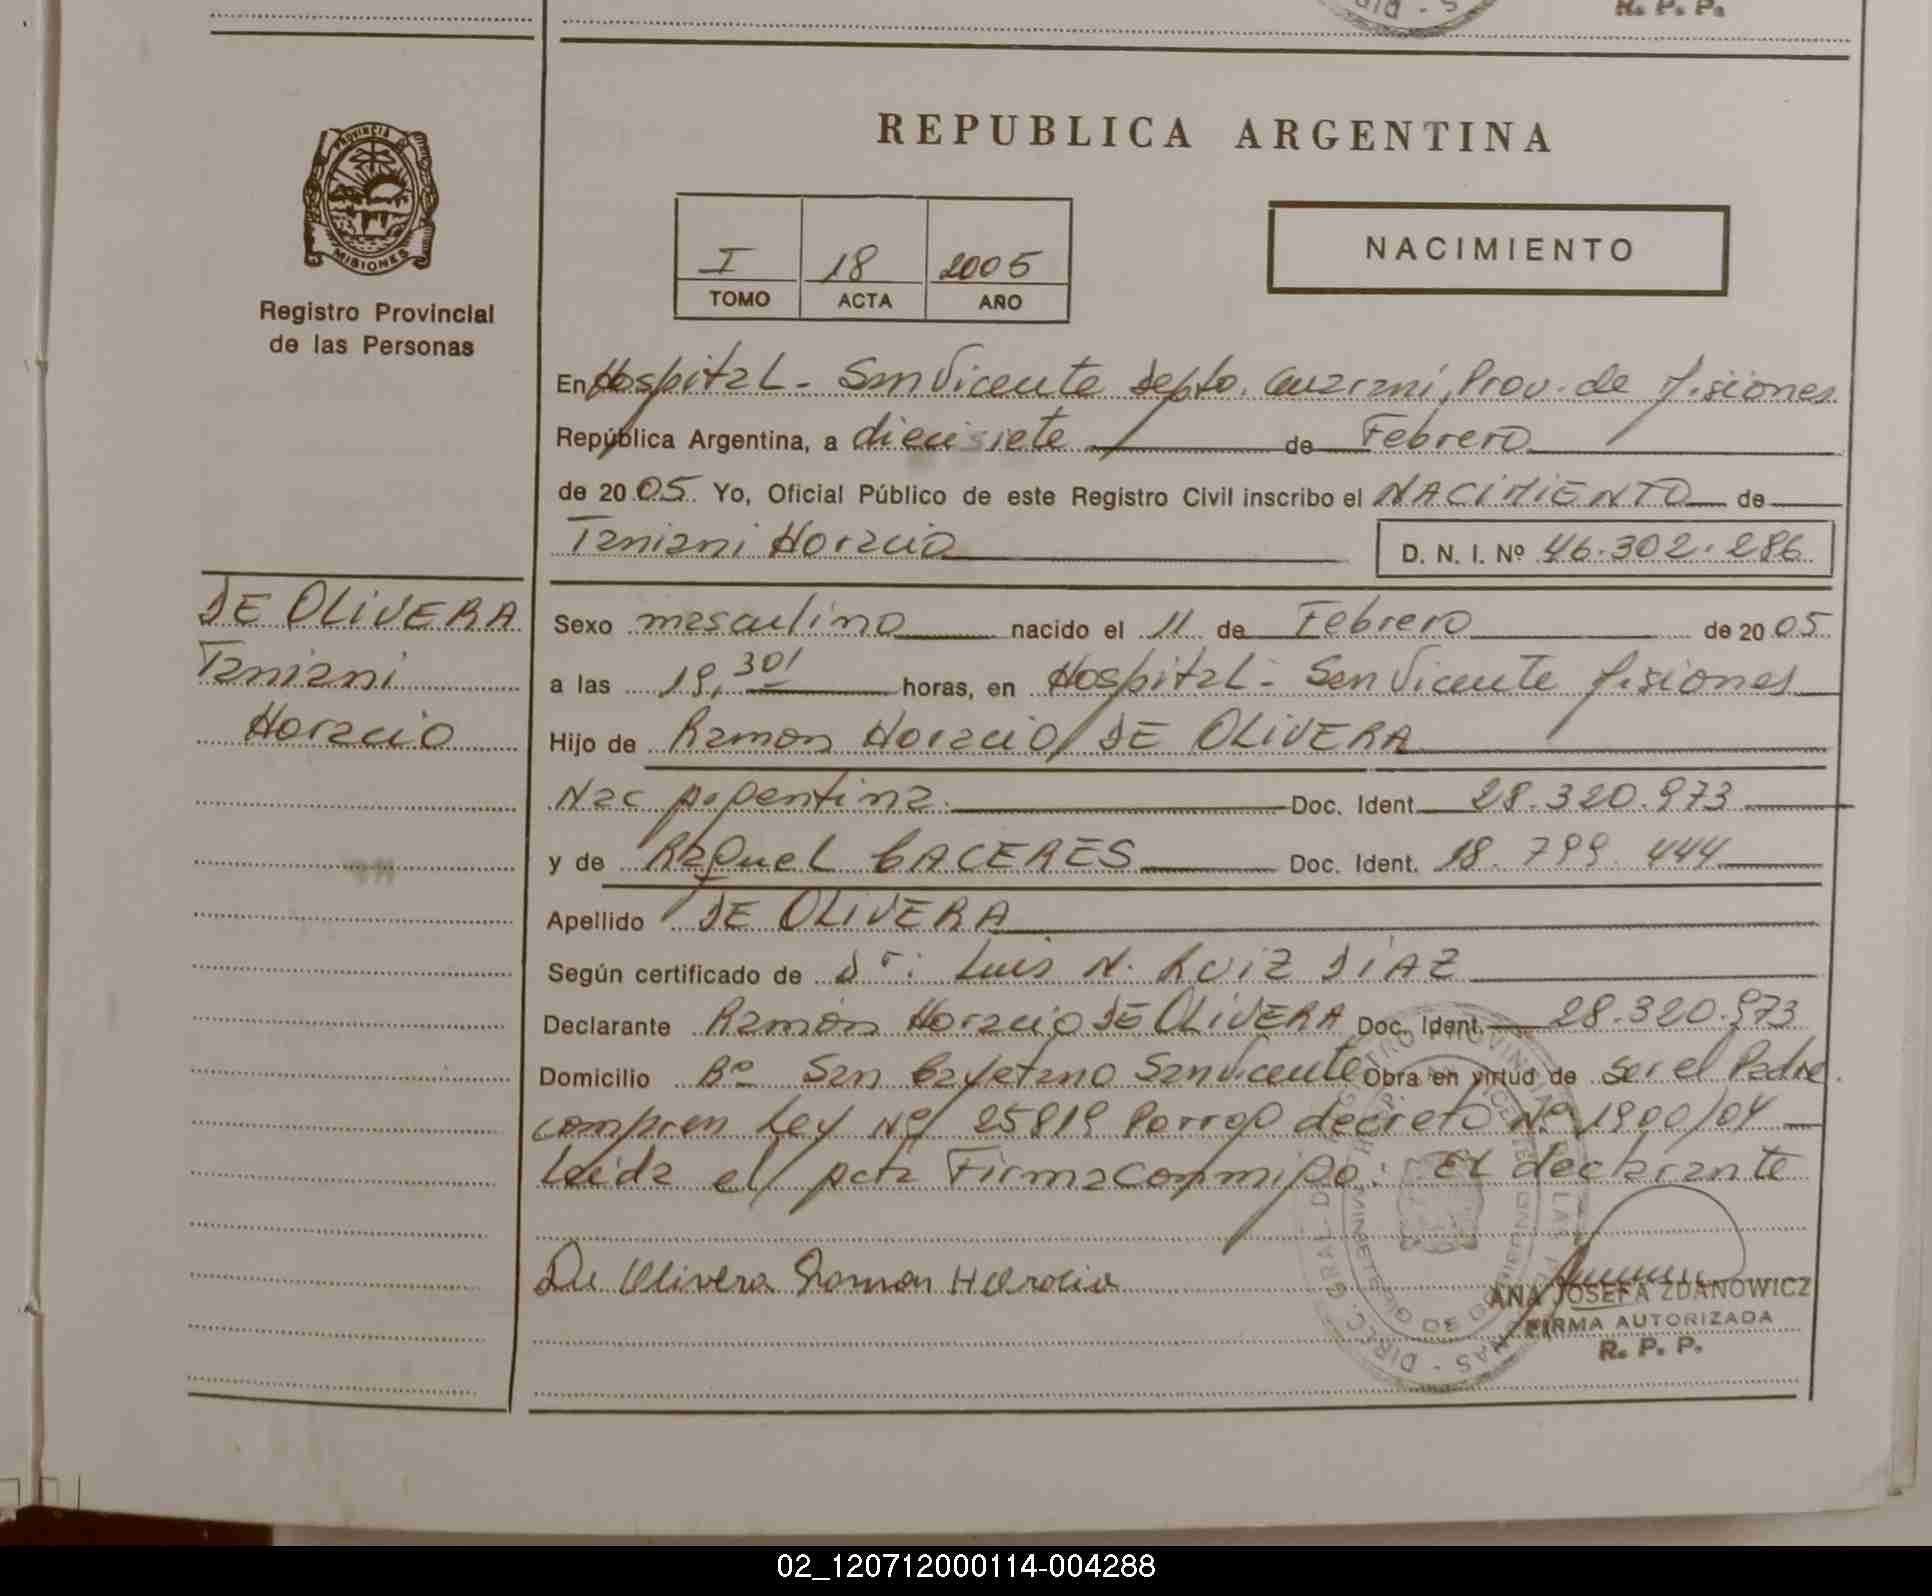 R. P. P.
REPUBLICA ARGENTINA
PROVINCIA
MISIONES
Registro Provincial
de las Personas
I 18 2005
TOMO ACTA AÑO
NACIMIENTO
En Hospital - San Vicente Depto. Guaraní, Prov. de Misiones
República Argentina, a diecisiete de Febrero
de 2005. Yo, Oficial Público de este Registro Civil inscribo el NACIMIENTO de
Taniani Horacio D. N. I. Nº 46.302.286
DE OLIVERA
Taniani
Horacio
Sexo masculino nacido el 11 de Febrero de 2005
a las 19,30' horas, en Hospital - San Vicente Misiones
Hijo de Ramon Horacio DE OLIVERA
Nac Argentina. Doc. Ident. 28.320.973
y de Raquel CACERES Doc. Ident. 18.799.444
Apellido DE OLIVERA
Según certificado de Dr: Luis N. RUIZ DIAZ
Declarante Ramón Horacio DE OLIVERA Doc. Ident. 28.320.973
Domicilio Bº San Cayetano San Vicente Obra en virtud de ser el Padre.
Ley Nº 25819 decreto Nº 1900/04
Leida el acta Firma conmigo: El declarante
De Olivera Ramon Horacio
ANA JOSEFA ZDANOWICZ
FIRMA AUTORIZADA
R. P. P.
02_120712000114-004288